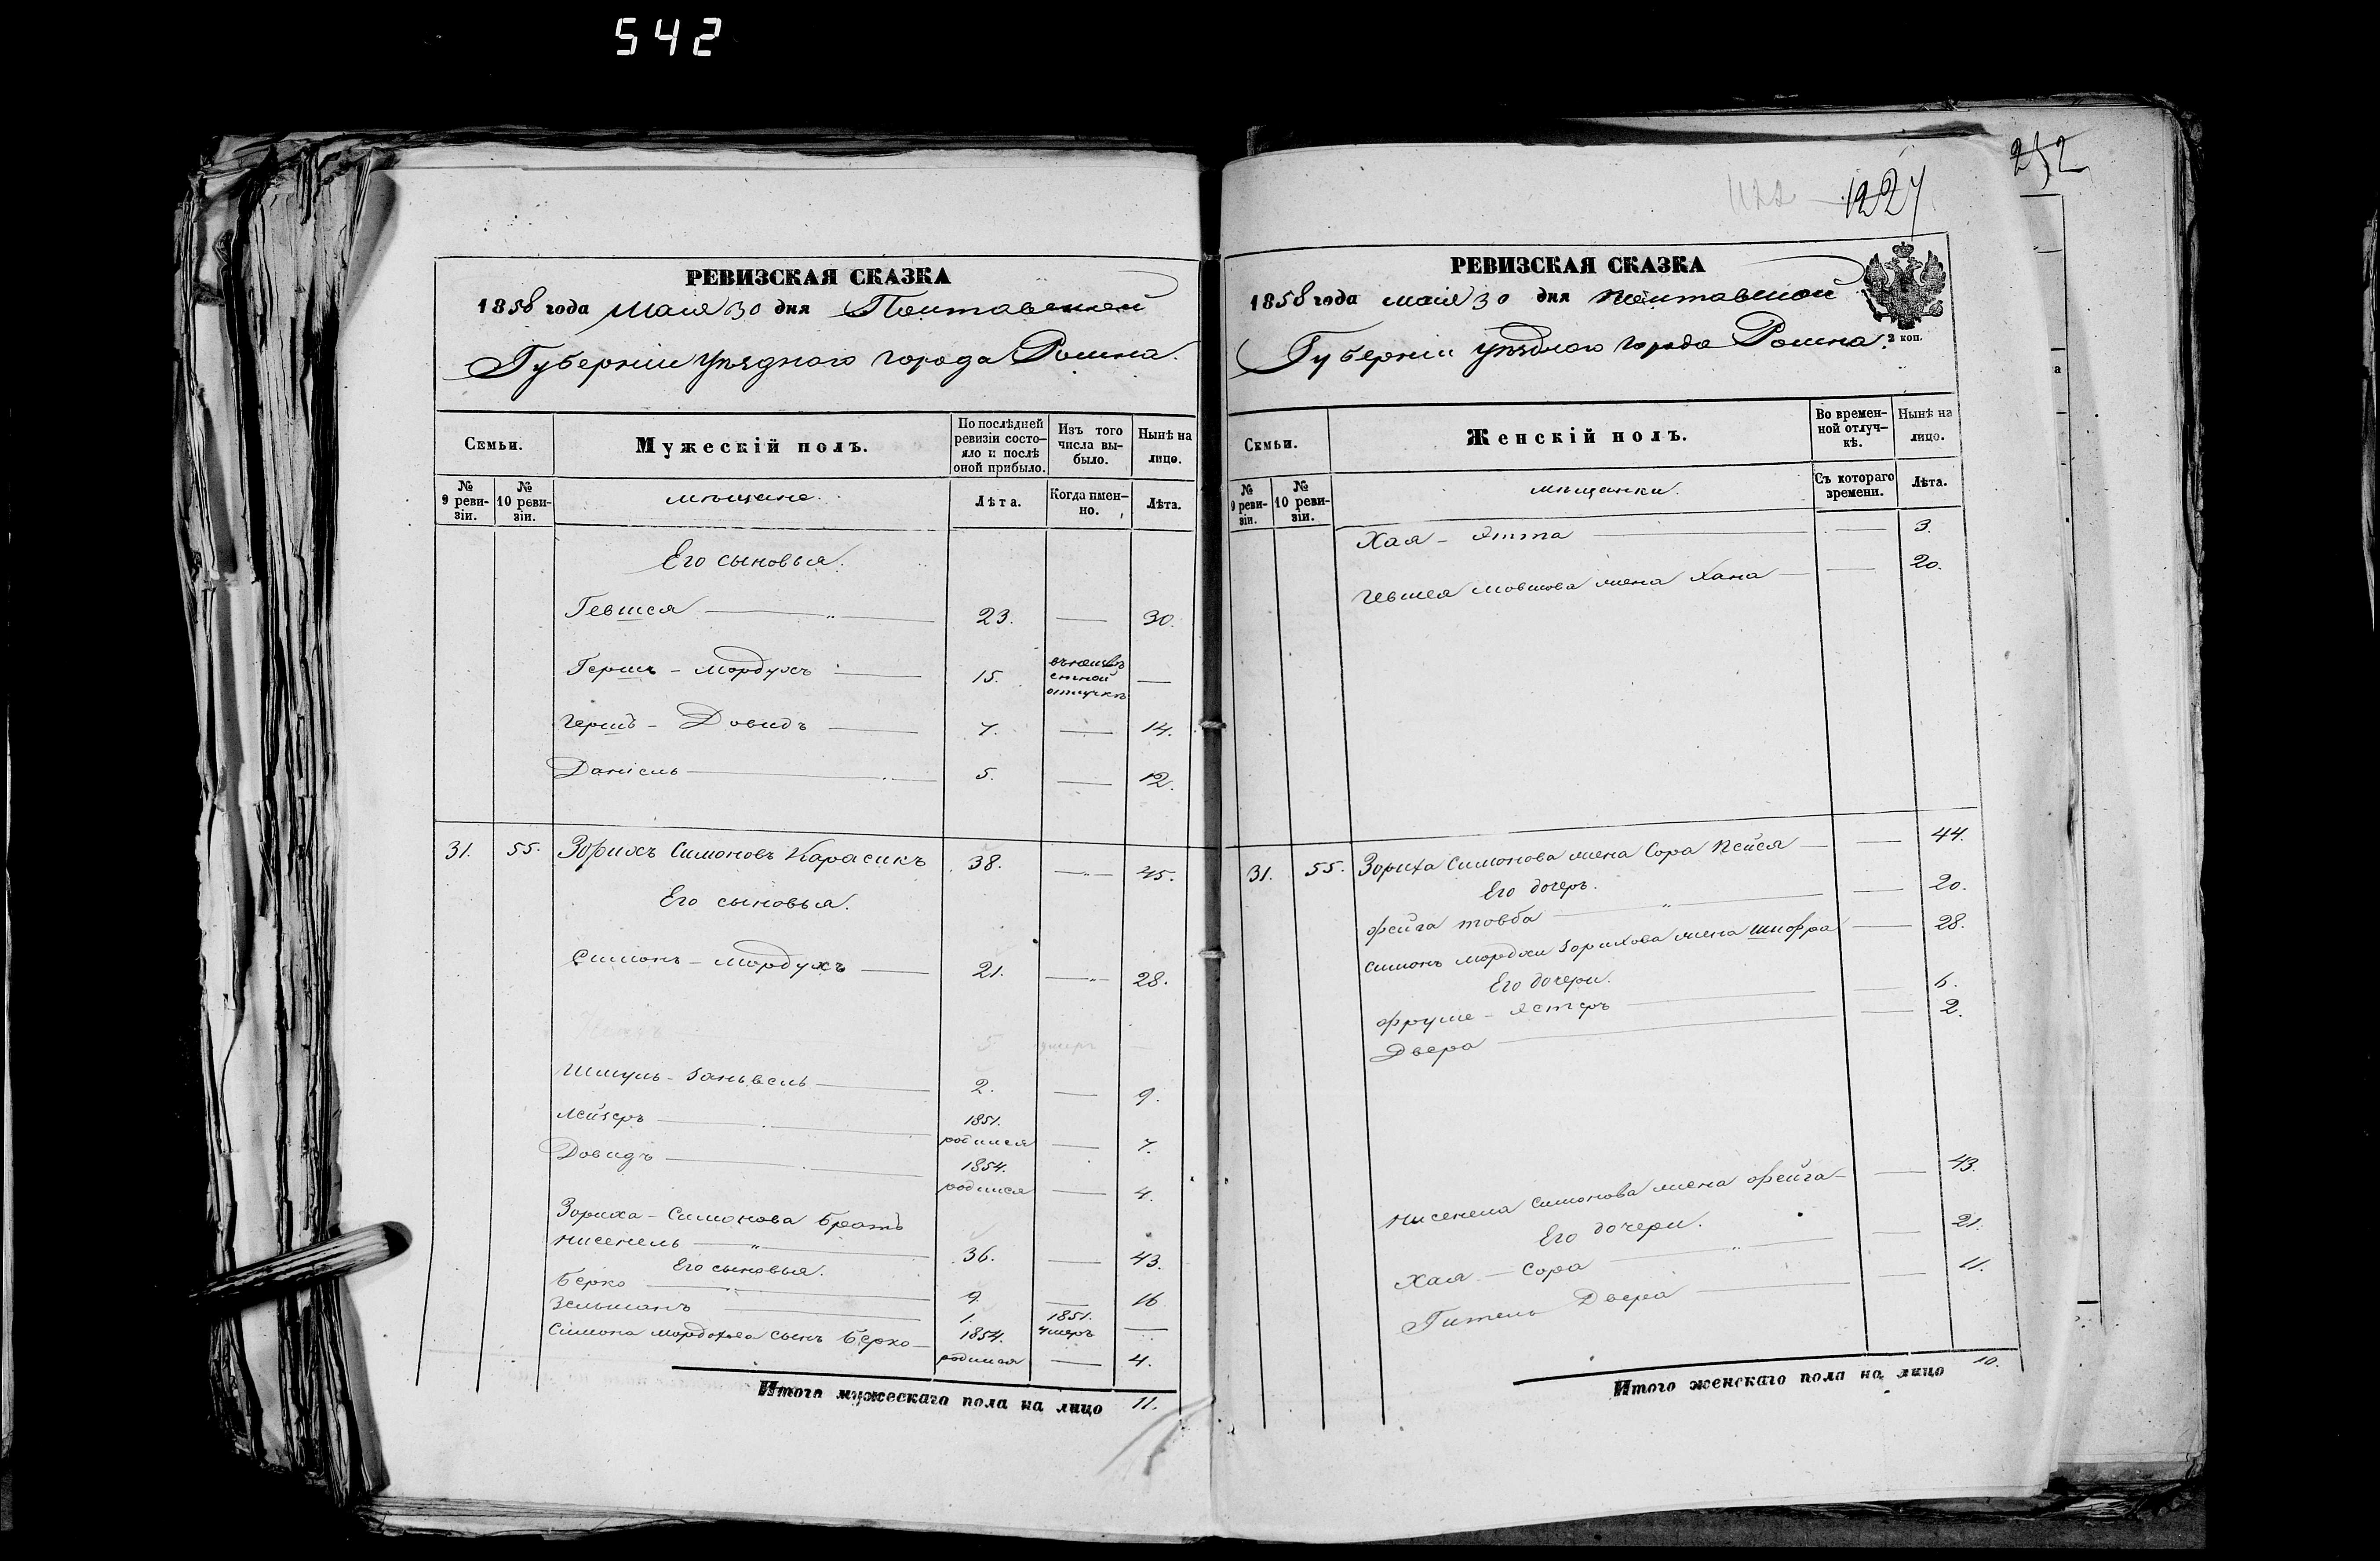 542
252
1227
РЕВИЗСКАЯ СКАЗКА
1858 года Маія 30 дня Полтавской
Губерніи уѣзднаго города Ромна.
Семьи.
Мужескій полъ.
По послѣдней ревизіи состояло и послѣ оной прибыло.
Изъ того числа выбыло.
Нынѣ на лицо.
№ 9 ревизіи.
№ 10 ревизіи.
мѣщане.
Лѣта.
Когда именно.
Лѣта.
Его сыновья.
Гевшея 23. 30.
Гершъ - Мордухъ 15. отлучкѣ
Гершъ - Довидъ 7. 14.
Даніель 5. 12.
31. 55. Зорихъ Симоновъ Карасикъ 38. 45.
Его сыновья.
Симонъ - Мордухъ 21. 28.
5 умеръ
Шмуль - Заньвель 2. 9.
Лейзеръ 1851. родился 7.
Довидъ 1854. родился 4.
Зориха - Симонова братъ
Нисенель 36. 43.
Его сыновья.
Берко 9. 16
Зельманъ 1. 1851. умеръ
Симона Мордохова сынъ Берко 1854. родился 4.
Итого мужескаго пола на лицо 11.
РЕВИЗСКАЯ СКАЗКА
1858 года маія 30 дня Полтавской
Губерніи уѣзднаго города Ромна.
2 коп.
Семьи.
Женскій полъ.
Во временной отлучкѣ.
Нынѣ на лицо.
№ 9 ревизіи.
№ 10 ревизіи.
мѣщанки.
Съ котораго времени.
Лѣта.
Хая - Этта 3.
Гевшея Мовшова жена Хана 20.
31. 55. Зориха Симонова жена Сора Пейся 44.
Его дочерь.
Фейга Товба 20.
Симонъ Мордхи Зорихова жена Шифра 28.
Его дочери.
Фруме - Эстеръ 6.
Двера 2.
Нисенела Симонова жена Фейга 43.
Его дочери.
Хая - Сора 21.
Гитель Двера 11.
Итого женскаго пола на лицо 10.